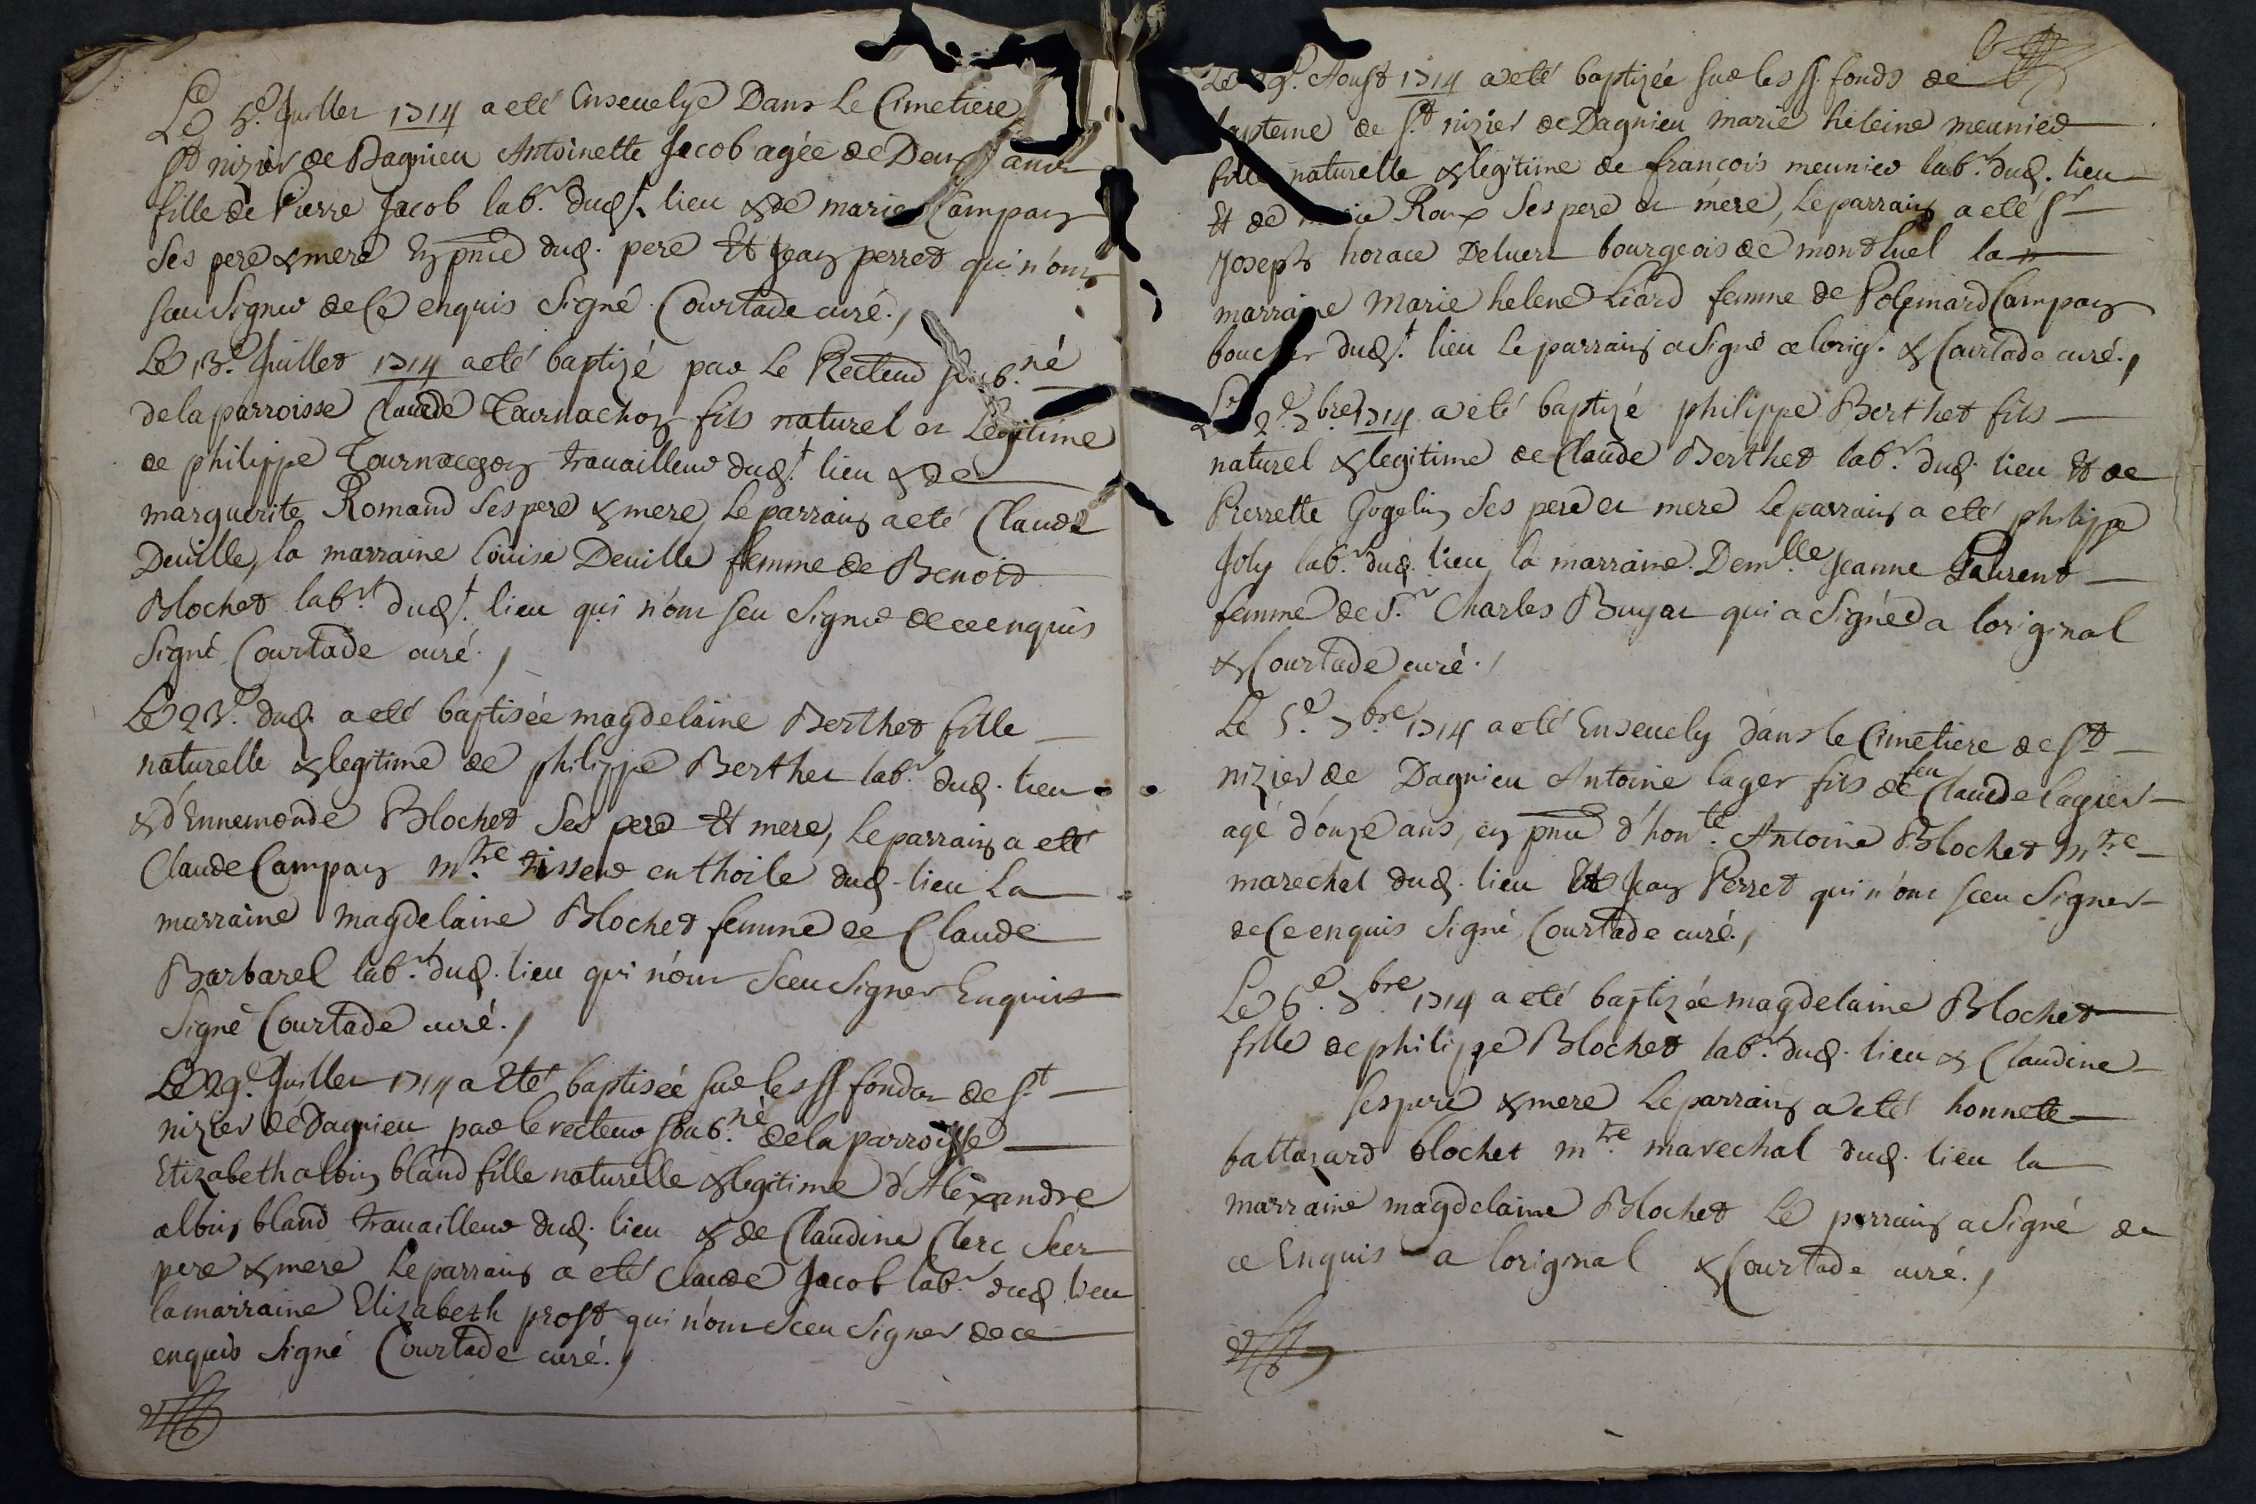 Le 5.e Juillet 1714 a eté Enseuelye Dans Le Cimetiere
st nizier de Dagnieu Antoinette Jacob agée de Deux ans
fille de Pierre Jacob lab.r dud.t lieu & de marie Campan
ses pere & mere En pnce dud. pere Et Jean perret qui n'ont
sceu signer de Ce enquis Signé Courtade curé.
Le 13.e Juillet 1714 a eté baptizé par Le Recteur né
de la parroisse Claude Tournachon fils naturel et Legitime
de philippe Tournachon trauailleur dud.t lieu & de
marguerite Romand ses pere & mere, Le parrain a eté Claude
Deuille, la marraine Louise Deuille femme de Benoid
Blochet lab.r dud.t lieu qui n'ont sceu Signer de ce enquis
Signé Courtade curé.
Le 23.e dud. a eté baptisée magdelaine Berthet fille
naturelle & legitime de philippe Berthet lab.r dud. lieu
& d'Ennemonde Blochet Ses pere Et mere, Le parrain a eté
Claude Campan m.tre tisseur en thoile dud. lieu La
marraine magdelaine Blochet femme de Claude
Barbarel lab.r dud. lieu qui n'ont Sceu Signer Enquis
Signé Courtade curé.
Le 29.e Juillet 1714 a Eté baptisée sur les ss fonds de s.t
nizier de Dagnieu par le recteur soub.né de la parroisse
Elizabeth albin bland fille naturelle & legitime d'Alexandre
albin bland trauailleur dud. lieu & de Claudine Clerc ses
pere & mere Le parrain a eté Claude Jacob lab.r dud. lieu
la marraine Elizabeth prost qui n'ont Sceu Signer de ce
enquis Signé Courtade curé.
Le 29.e Aoust 1714 a eté baptizée sur les ss. fonds de
bapteme de s.t nizier de Dagnieu marie heleine meunier
fille naturelle & legitime de françois meunier lab.r dud. lieu
Et de Roux Ses pere et mere, Le parrain a eté s.r
Joseph horace Deluers bourgeois de montluel la
marraine Marie helene Liard femme de Polemard Campan
boucher dud.t lieu Le parrain a Signé a lorig. & Courtade curé.
Le 2.e 7bre 1714 a eté baptizé philippe Berthet fils
naturel & legitime de Claude Berthet lab.r dud. lieu Et de
Pierrette Gogelin Ses pere et mere Le parrain a eté philippe
Joly lab.r dud. lieu la marraine Dem.lle Jeanne Laurent
femme de S.r Charles Buyat qui a Signéd a loriginal
& Courtade curé.
Le 5.e 7bre 1714 a eté Enseuely dans le Cimetiere de s.t
nizier de Dagnieu Antoine lager fils de feu Claude lagier
agé d'onze ans, en pnce d'hon.te Antoine Blochet m.tre
marechal dud. lieu Et Jean Perret qui n'ont sceu Signer
de Ce enquis Signé Courtade curé.
Le 6.e 7bre 1714 a eté baptizée magdelaine Blochet
fille de philippe Blochet lab.r dud. lieu & Claudine
ses pere & mere Le parrain a eté honnete
baltazard blochet m.tre marechal dud. lieu la
marraine magdelaine Blochet Le parrain a Signé de
ce Enquis a loriginal & Courtade curé.